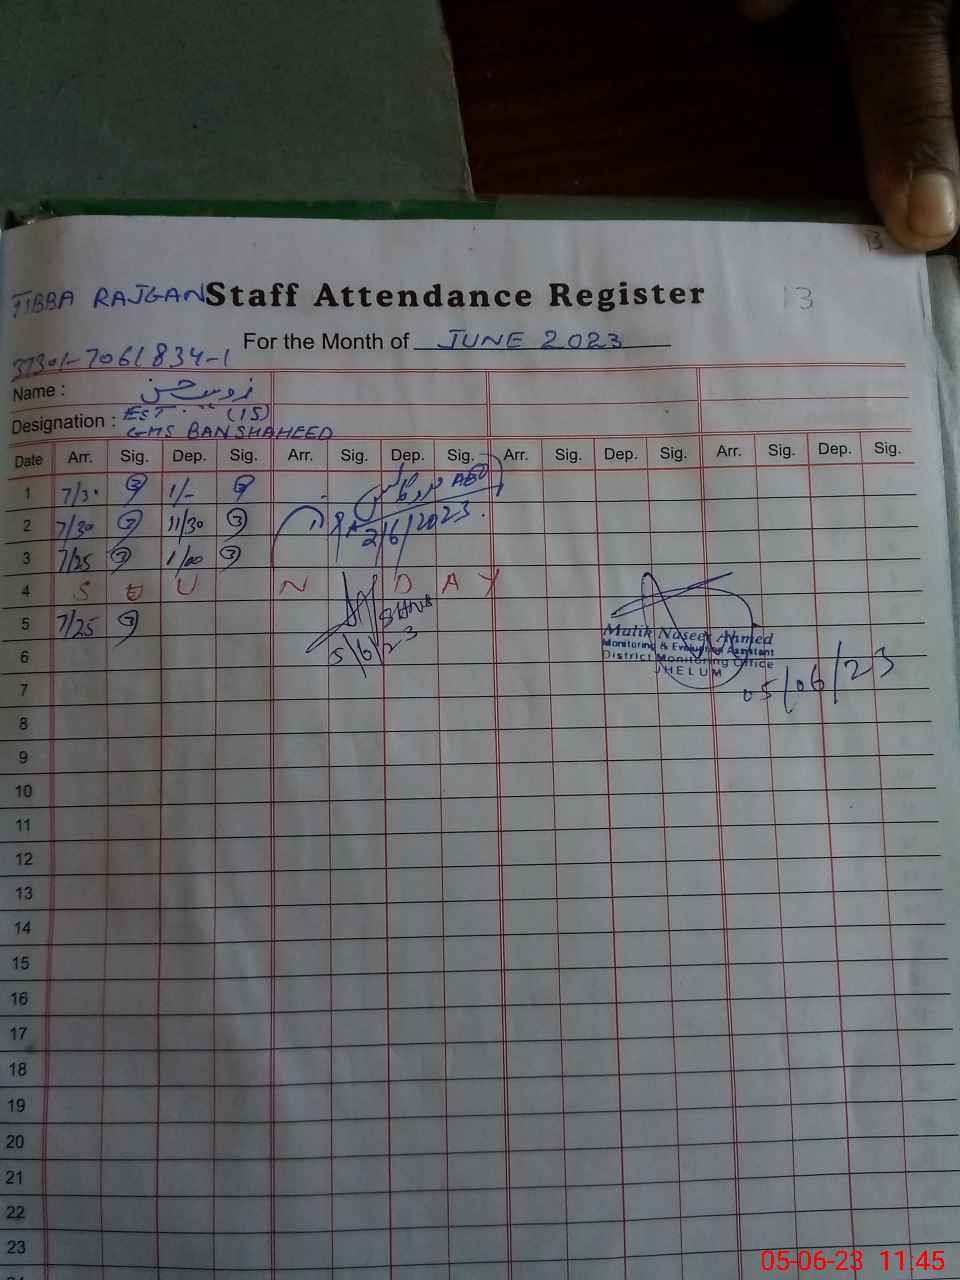 13
JIBBA RAJGAN Staff Attendance Register 13
For the Month of JUNE 2023
37301-7061834-1
Name :
Designation : EST (15)
GMS BANSHAHEED
Date Arr. Sig. Dep. Sig. Arr. Sig. Dep. Sig. Arr. Sig. Dep. Sig. Arr. Sig. Dep. Sig.
1 7/30 1/-
2 7/30 11/30 2/6/2023
3 7/25 1/00
4 S U N D A Y
5 7/25
5/6/23
Malik Naseer Ahmed
Monitoring & Evaluation Assistant
District Monitoring Office
JHELUM
05/06/23
6
7
8
9
10
11
12
13
14
15
16
17
18
19
20
21
22
23
05-06-23 11:45